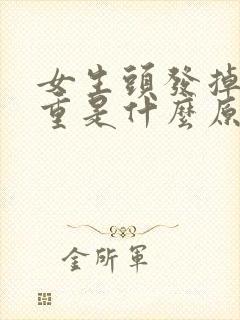 女生頭發掉
重是什麼原
金所軍